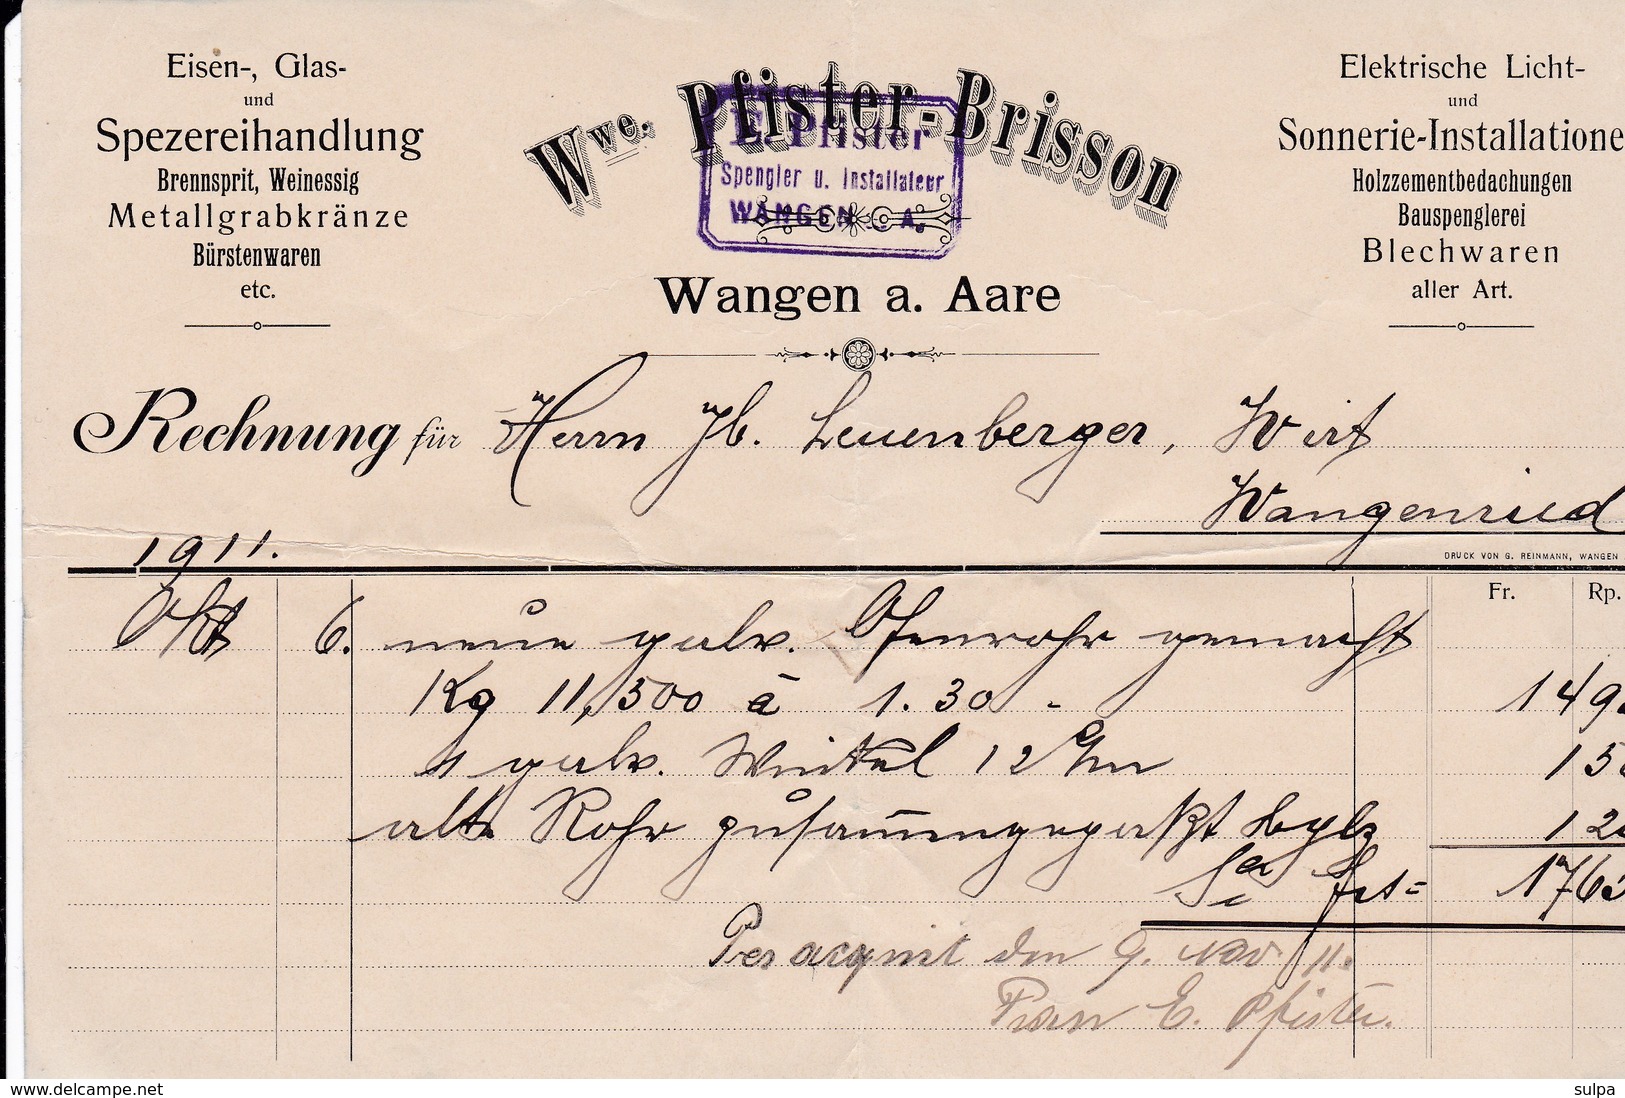 Eisen-, Glas-
und
Spezereihandlung
Brennsprit, Weinessig
Metallgrabkränze
Bürstenwaren
etc.
Wwe. Pfister-Brisson
E. Pfister
Spengler u. Installateur
WANGEN a. A.
Wangen a. Aare
Elektrische Licht-
und
Sonnerie-Installatione
Holzzementbedachungen
Bauspenglerei
Blechwaren
aller Art.
Rechnung für Herrn Jb. Leuenberger, Wirt
Wangenried
1911.
DRUCK VON G. REINMANN, WANGEN
Fr. Rp.
Okt 6. neue galv. Ofenrohr gemacht
Kg 11,500 à 1.30 - 14 9
1 galv. Winkel 12 c/m 1 5
alte Rohr zusammengepaßt 1 2
Sa frs= 17 6
Per acquit den 9. Nov. 11.
Frau E. Pfister.
www.delcampe.net
sulpa